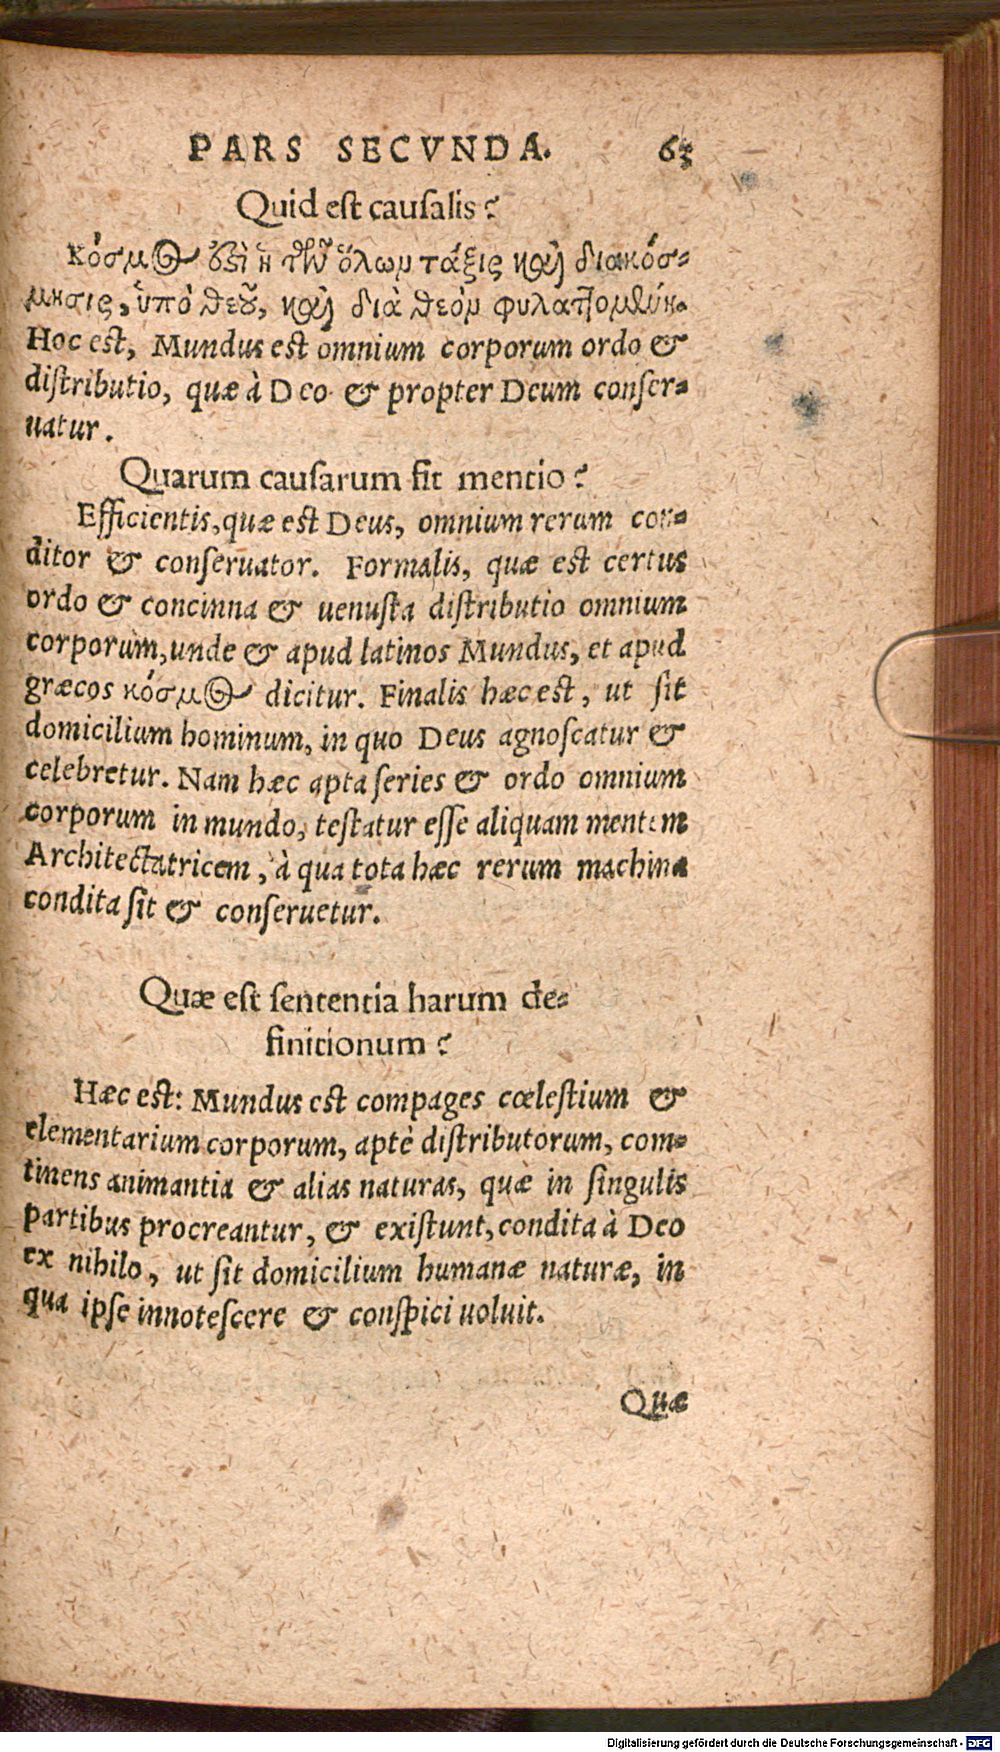 PARS SECVNDA. 63
Quid est causalis?
κόσμος ὅτι ἡ τῶν ὅλων τάξις καὶ διακόσ-
μησις, ὑπὸ θεοῦ, καὶ διὰ θεὸν φυλαττομένη.
Hoc est, Mundus est omnium corporum ordo &
distributio, quæ à Deo & propter Deum conser-
uatur.
Quarum causarum fit mentio?
Efficientis, quæ est Deus, omnium rerum con-
ditor & conseruator. Formalis, quæ est certus
ordo & concinna & uenusta distributio omnium
corporum, unde & apud latinos Mundus, et apud
græcos κόσμος dicitur. Finalis hæc est, ut sit
domicilium hominum, in quo Deus agnoscatur &
celebretur. Nam hæc apta series & ordo omnium
corporum in mundo, testatur esse aliquam mentem
Architectatricem, à qua tota hæc rerum machina
condita sit & conseruetur.
Quæ est sententia harum de-
finitionum?
Hæc est: Mundus est compages cœlestium &
elementarium corporum, aptè distributorum, com-
tinens animantia & alias naturas, quæ in singulis
partibus procreantur, & existunt, condita à Deo
ex nihilo, ut sit domicilium humanæ naturæ, in
qua ipse innotescere & conspici uoluit.
Quæ
Digitalisierung gefördert durch die Deutsche Forschungsgemeinschaft - DFG